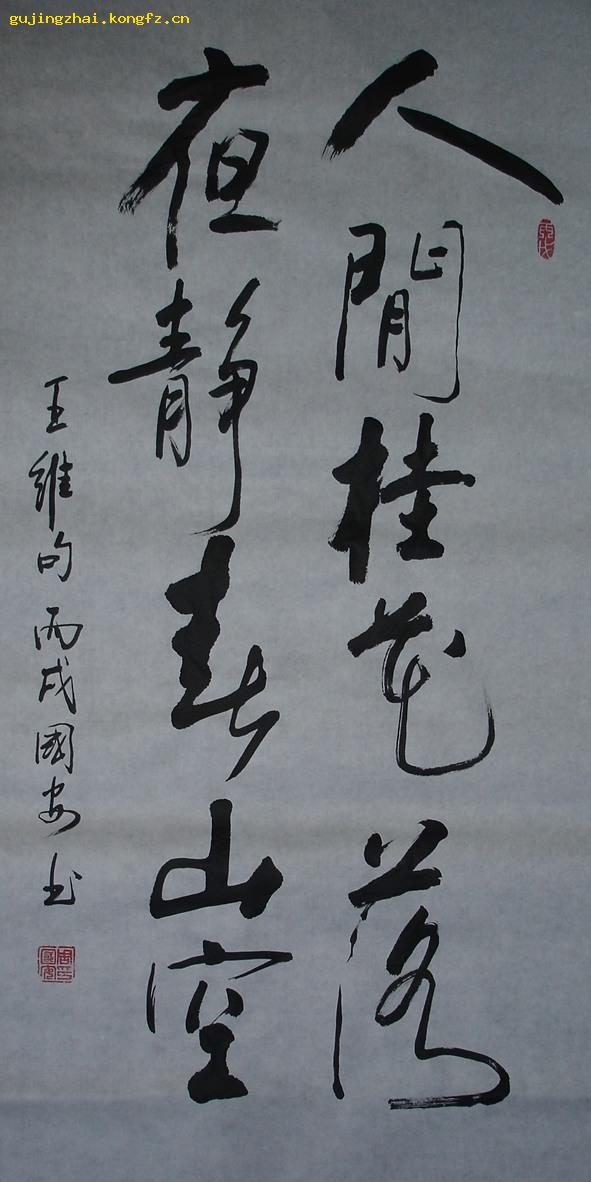 gujingzhai.kongfz.cn
人閒桂花落
夜静春山空
王維句丙戌國安书
丙戌